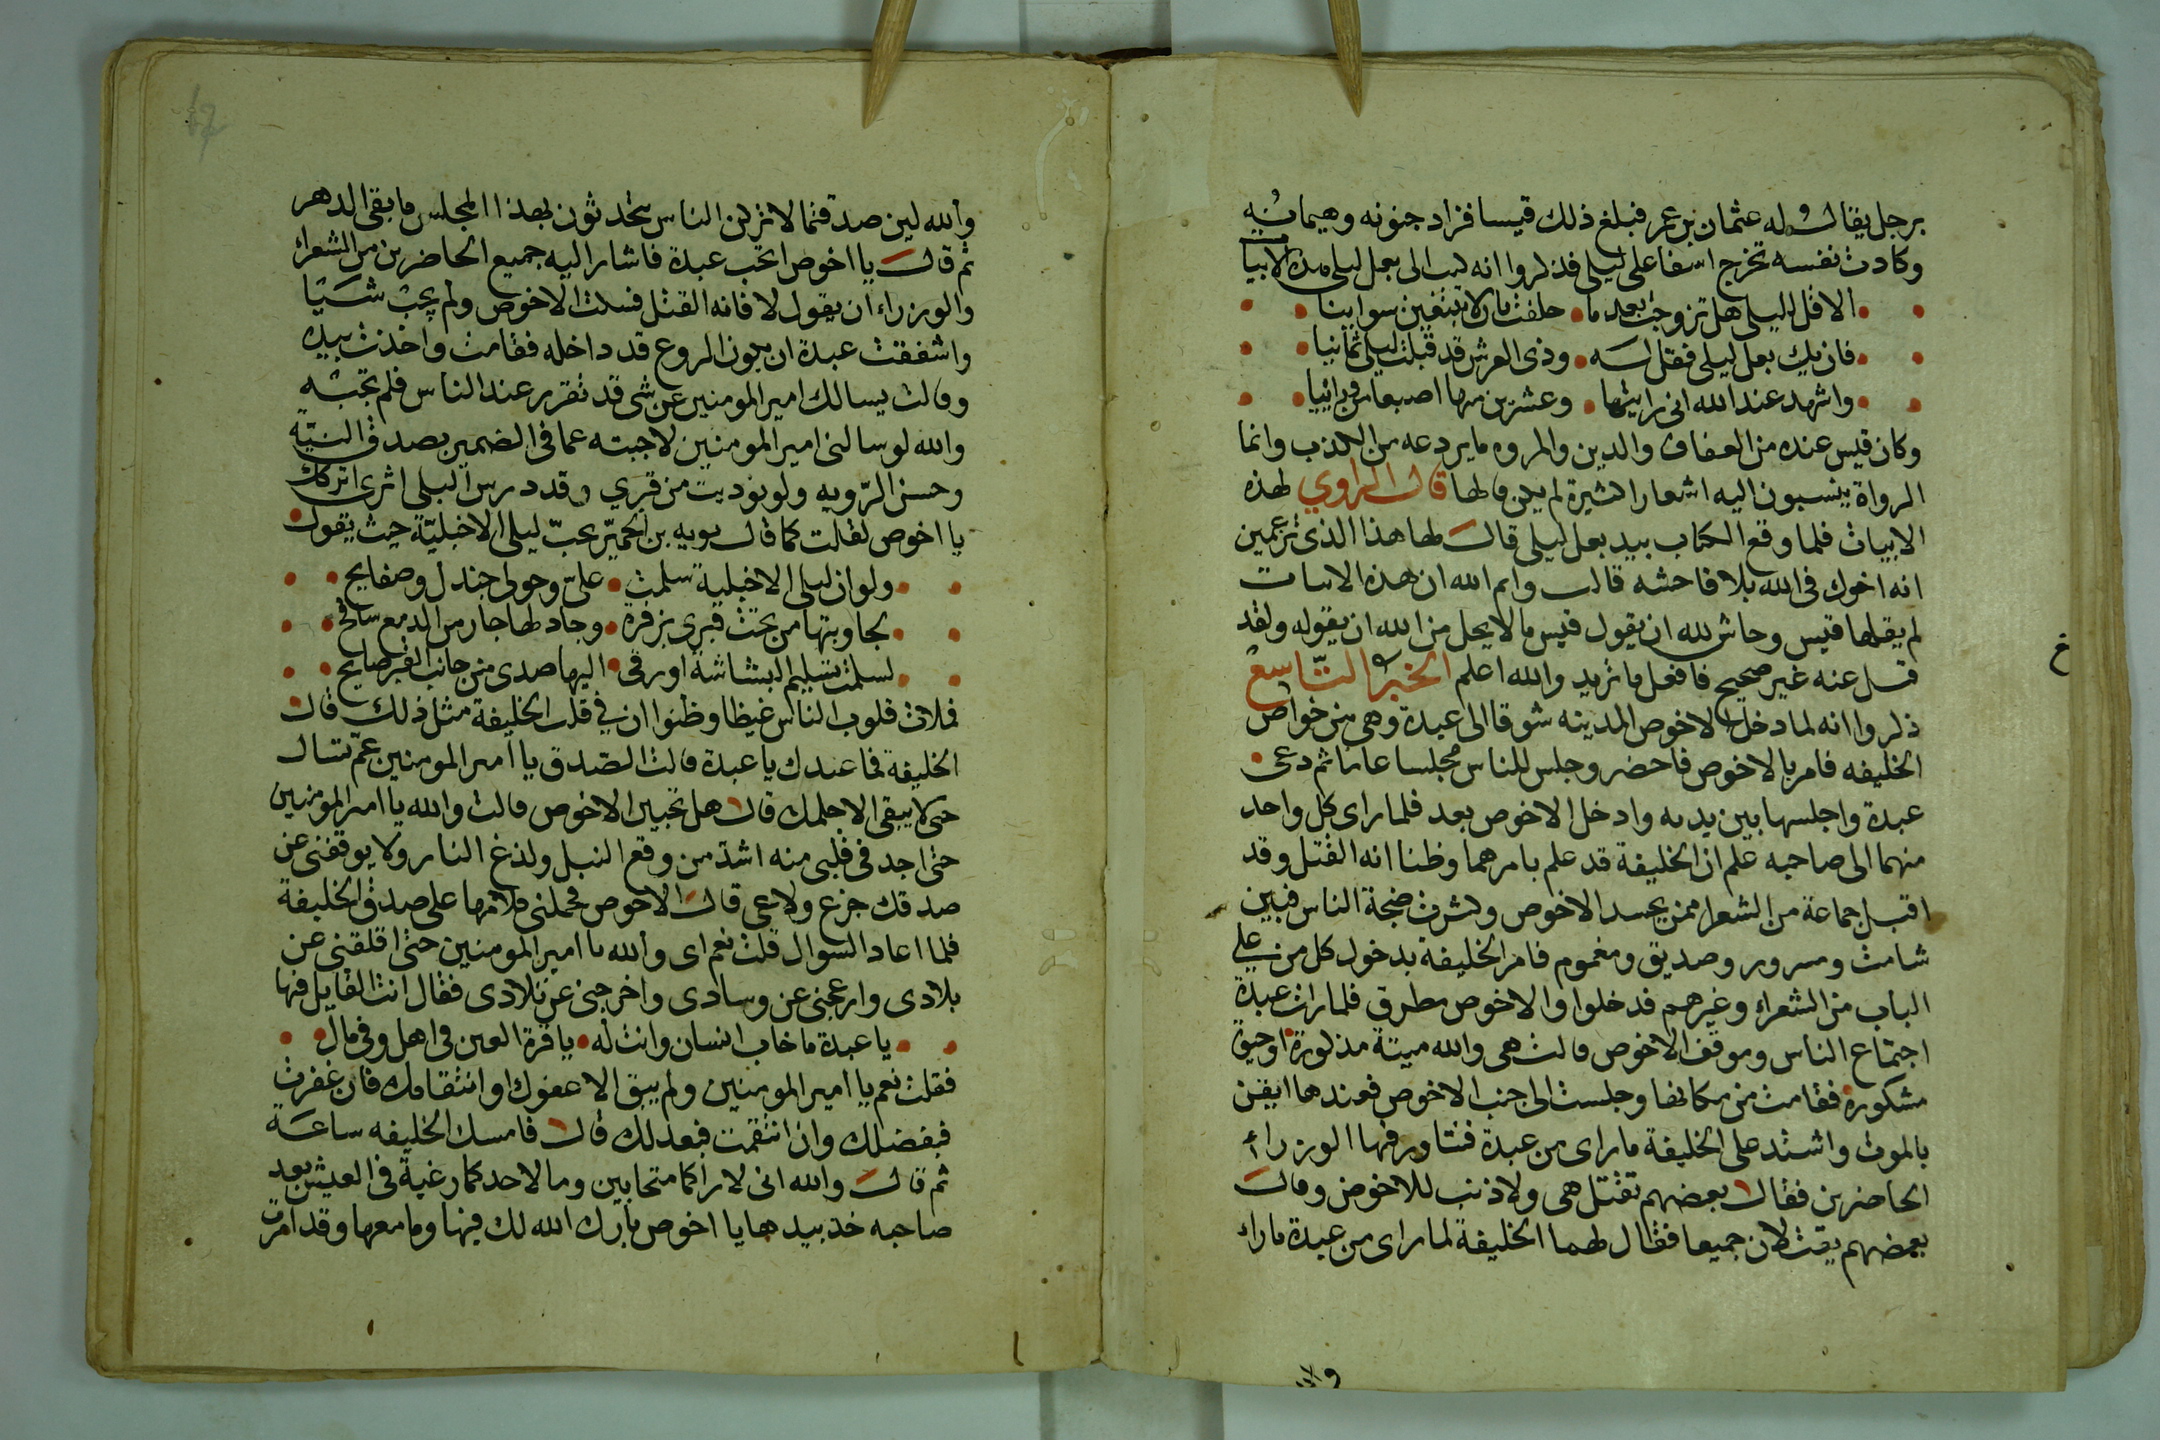 برجل يقال له عثمان بن عمر فبلغ ذلك قيسا فزاد جنونه وهيمانه
وكادت نفسه تخرج اسفا على ليلى فذكروا انه كتب الى بعل ليلى هذه الابيا
الا قل لليلى هل تزوجت بعد ما حلفت بان لا تبتغين سوائنا
فان يك بعل ليلى فقل له وذى العرش قد قبلت ليلى ثمانيا
واشهد عند الله انى رايتها وعشرين منها اصبعا من ورائيا
وكان قيس عنده من العفاف والدين والمروه ما يردعه من الكذب وانما
الرواة ينسبون اليه اشعارا كثيرة لم يكن قالها قال الراوي لهذه
الابيات فلما وقع الكتاب بيد بعل ليلى قال لها هذا الذى تزعمين
انه اخوك فى الله بلا فاحشه قالت وايم الله ان هذه الابيات
لم يقلها قيس وحاش لله ان يقول قيس ما لا يحل من الله ان يقوله ولقد
قيل عنه غير صحيح فافعل ما تريد والله اعلم الخبر التاسع
ذكروا انه لما دخل الاخوص المدينه شوقا الى عبدة وهى من خواص
الخليفه فامر بالاخوص فاحضر وجلس للناس مجلسا عاما ثم دعى
عبدة واجلسها بين يديه وادخل الاخوص بعد فلما راى كل واحد
منهما الى صاحبه علم ان الخليفة قد علم بامرهما وظنا انه القتل وقد
اقبل جماعة من الشعرا ممن يحسد الاخوص وكثرت ضجة الناس فبين
شامت ومسرور وصديق ومغموم فامر الخليفة بدخول كل من على
الباب من الشعراء وغيرهم فدخلوا والاخوص مطرق فلما رات عبدة
اجتماع الناس وموقف الاخوص قالت هى والله ميتة مذكورة او حيوة
مشكورة فقامت من مكانها وجلست الى جنب الاخوص فعندها ايقن
بالموت واشتد على الخليفة ما راى من عبدة فتشاور فيها الوزراء
الحاضرين فقال بعضهم تقتل هى ولا ذنب للاخوص وقال
بعضهم يقتلان جميعا فقال لهما الخليفة لما راى من عبدة ما راى
والله لين صدقتما لاتركن الناس يتحدثون بهذا المجلس ما بقى الدهر
ثم قال يا اخوص اتحب عبدة فاشار اليه جميع الحاضرين من الشعراء
والوزراء ان يقول لا فانه القتل فسكت الاخوص ولم يجب شيا
واشفقت عبدة ان يكون الروع قد داخله فقامت واخذت بيده
وقالت يسالك امير المومنين عن شى قد تقرر عند الناس فلم تجبه
والله لو سالنى امير المومنين لاجبته عما فى الضمير بصدق النيه
وحسن الرويه ولو نوديت من قبري وقد درس البلى اثرى اتركك
يا اخوص لقلت كما قال توبه بن الحمير بحب ليلى الاخيلية حيث يقول
ولو ان ليلى الاخيلية سلمت على وحولى جندل وصفايح
لجاوبتها من تحت قبرى بزفرة وجاد لها جار من الدمع سافح
لسلمت تسليم البشاشة او زقى اليها صدى من جانب القبر صايح
فملات قلوب الناس غيظا وظنوا ان في قلب الخليفة مثل ذلك قال
الخليفة فما عندك يا عبدة قالت الصدق يا امير المومنين عم تسال
حتى لا يبقى الا حلمك قال هل تحبين الاخوص قالت والله يا امير المومنين
حتى اجد فى قلبى منه اشد من وقع النبل ولذغ النار ولا يوقفنى عن
صدقك جزع ولا عى قال الاخوص فحملنى كلامها على صدق الخليفة
فلما اعاد السوال قلت نعم اى والله يا امير المومنين حتى اقلقنى عن
بلادى وازعجنى عن وسادى واخرجنى عن تلادى فقال انت القايل فيها
يا عبدة ما خاب انسان وانت له يا قرة العين فى اهل وفى مال
فقلت نعم يا امير المومنين ولم يبق الا عفوك او انتقامك فان غفرت
فبفضلك وان انتقمت فبعدلك قال فامسك الخليفه ساعة
ثم قال والله انى لاراكما متحابين وما لاحدكما رغبة فى العيش بعد
صاحبه خذ بيدها يا اخوص بارك الله لك فيها وما معها وقد امرت